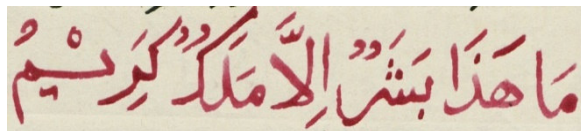 مَا هَذَا بَشَرٌ اِلَّا مَلَكٌ كَرِيْمٌ